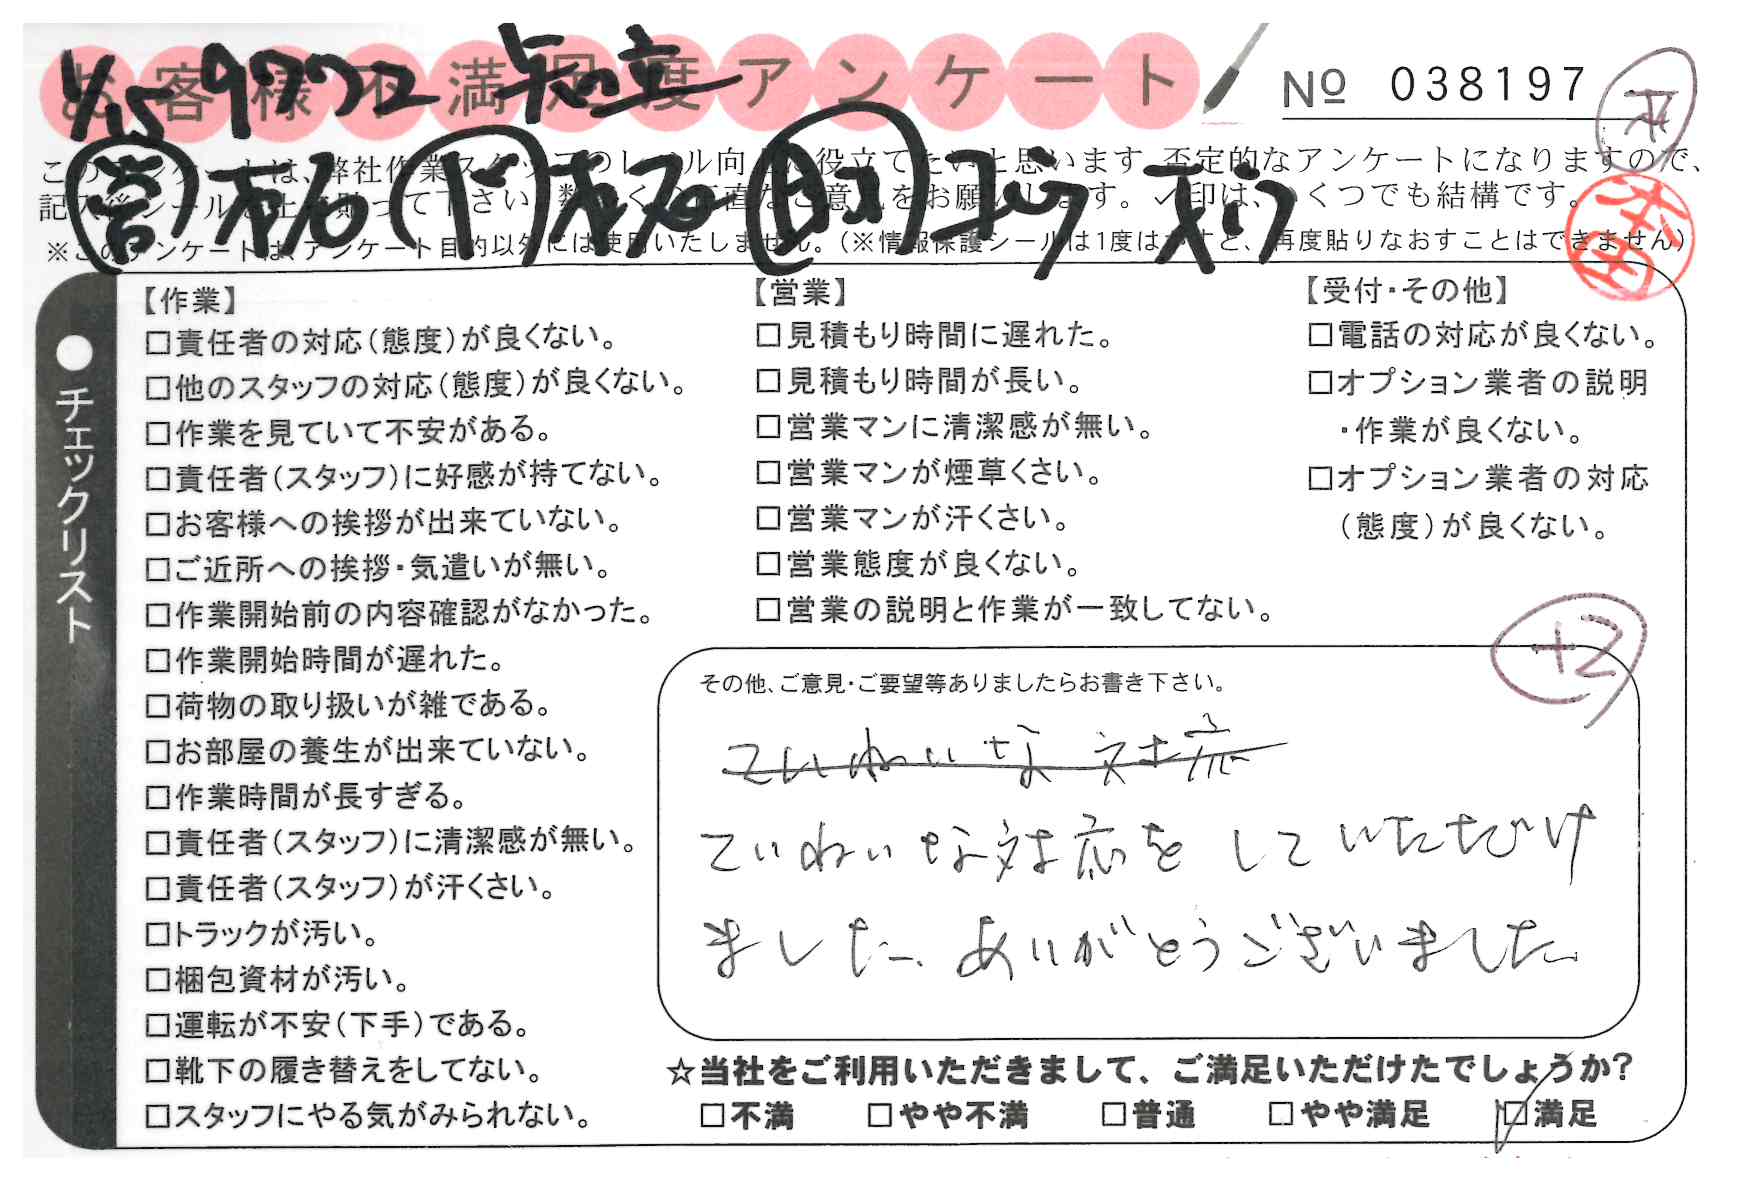 お客様不満足度アンケート
1/15 9772 知立
No 038197
このアンケートは、弊社作業スタッフのレベル向上に役立てたいと思います。否定的なアンケートになりますので、
記入後シールを上に貼って下さい。数多くの正直なご意見をお願いします。✓印は、いくつでも結構です。
※このアンケートは、アンケート目的以外には使用いたしません。(※情報保護シールは1度はがすと、再度貼りなおすことはできません)
●チェックリスト
【作業】
□責任者の対応(態度)が良くない。
□他のスタッフの対応(態度)が良くない。
□作業を見ていて不安がある。
□責任者(スタッフ)に好感が持てない。
□お客様への挨拶が出来ていない。
□ご近所への挨拶・気遣いが無い。
□作業開始前の内容確認がなかった。
□作業開始時間が遅れた。
□荷物の取り扱いが雑である。
□お部屋の養生が出来ていない。
□作業時間が長すぎる。
□責任者(スタッフ)に清潔感が無い。
□責任者(スタッフ)が汗くさい。
□トラックが汚い。
□梱包資材が汚い。
□運転が不安(下手)である。
□靴下の履き替えをしてない。
□スタッフにやる気がみられない。
【営業】
□見積もり時間に遅れた。
□見積もり時間が長い。
□営業マンに清潔感が無い。
□営業マンが煙草くさい。
□営業マンが汗くさい。
□営業態度が良くない。
□営業の説明と作業が一致してない。
【受付・その他】
□電話の対応が良くない。
□オプション業者の説明
・作業が良くない。
□オプション業者の対応
(態度)が良くない。
+2
その他、ご意見・ご要望等ありましたらお書き下さい。
ていねいな対応
ていねいな対応をしていただけ
ました。ありがとうございました
☆当社をご利用いただきまして、ご満足いただけたでしょうか?
□不満 □やや不満 □普通 □やや満足 ☑満足